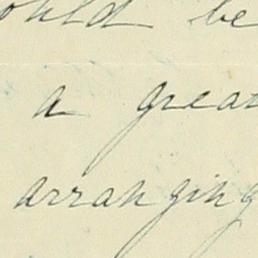 ould be
a great
arranging